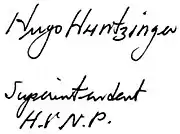 Hugo Huntzinger
Superintendent
H.V.N.P.